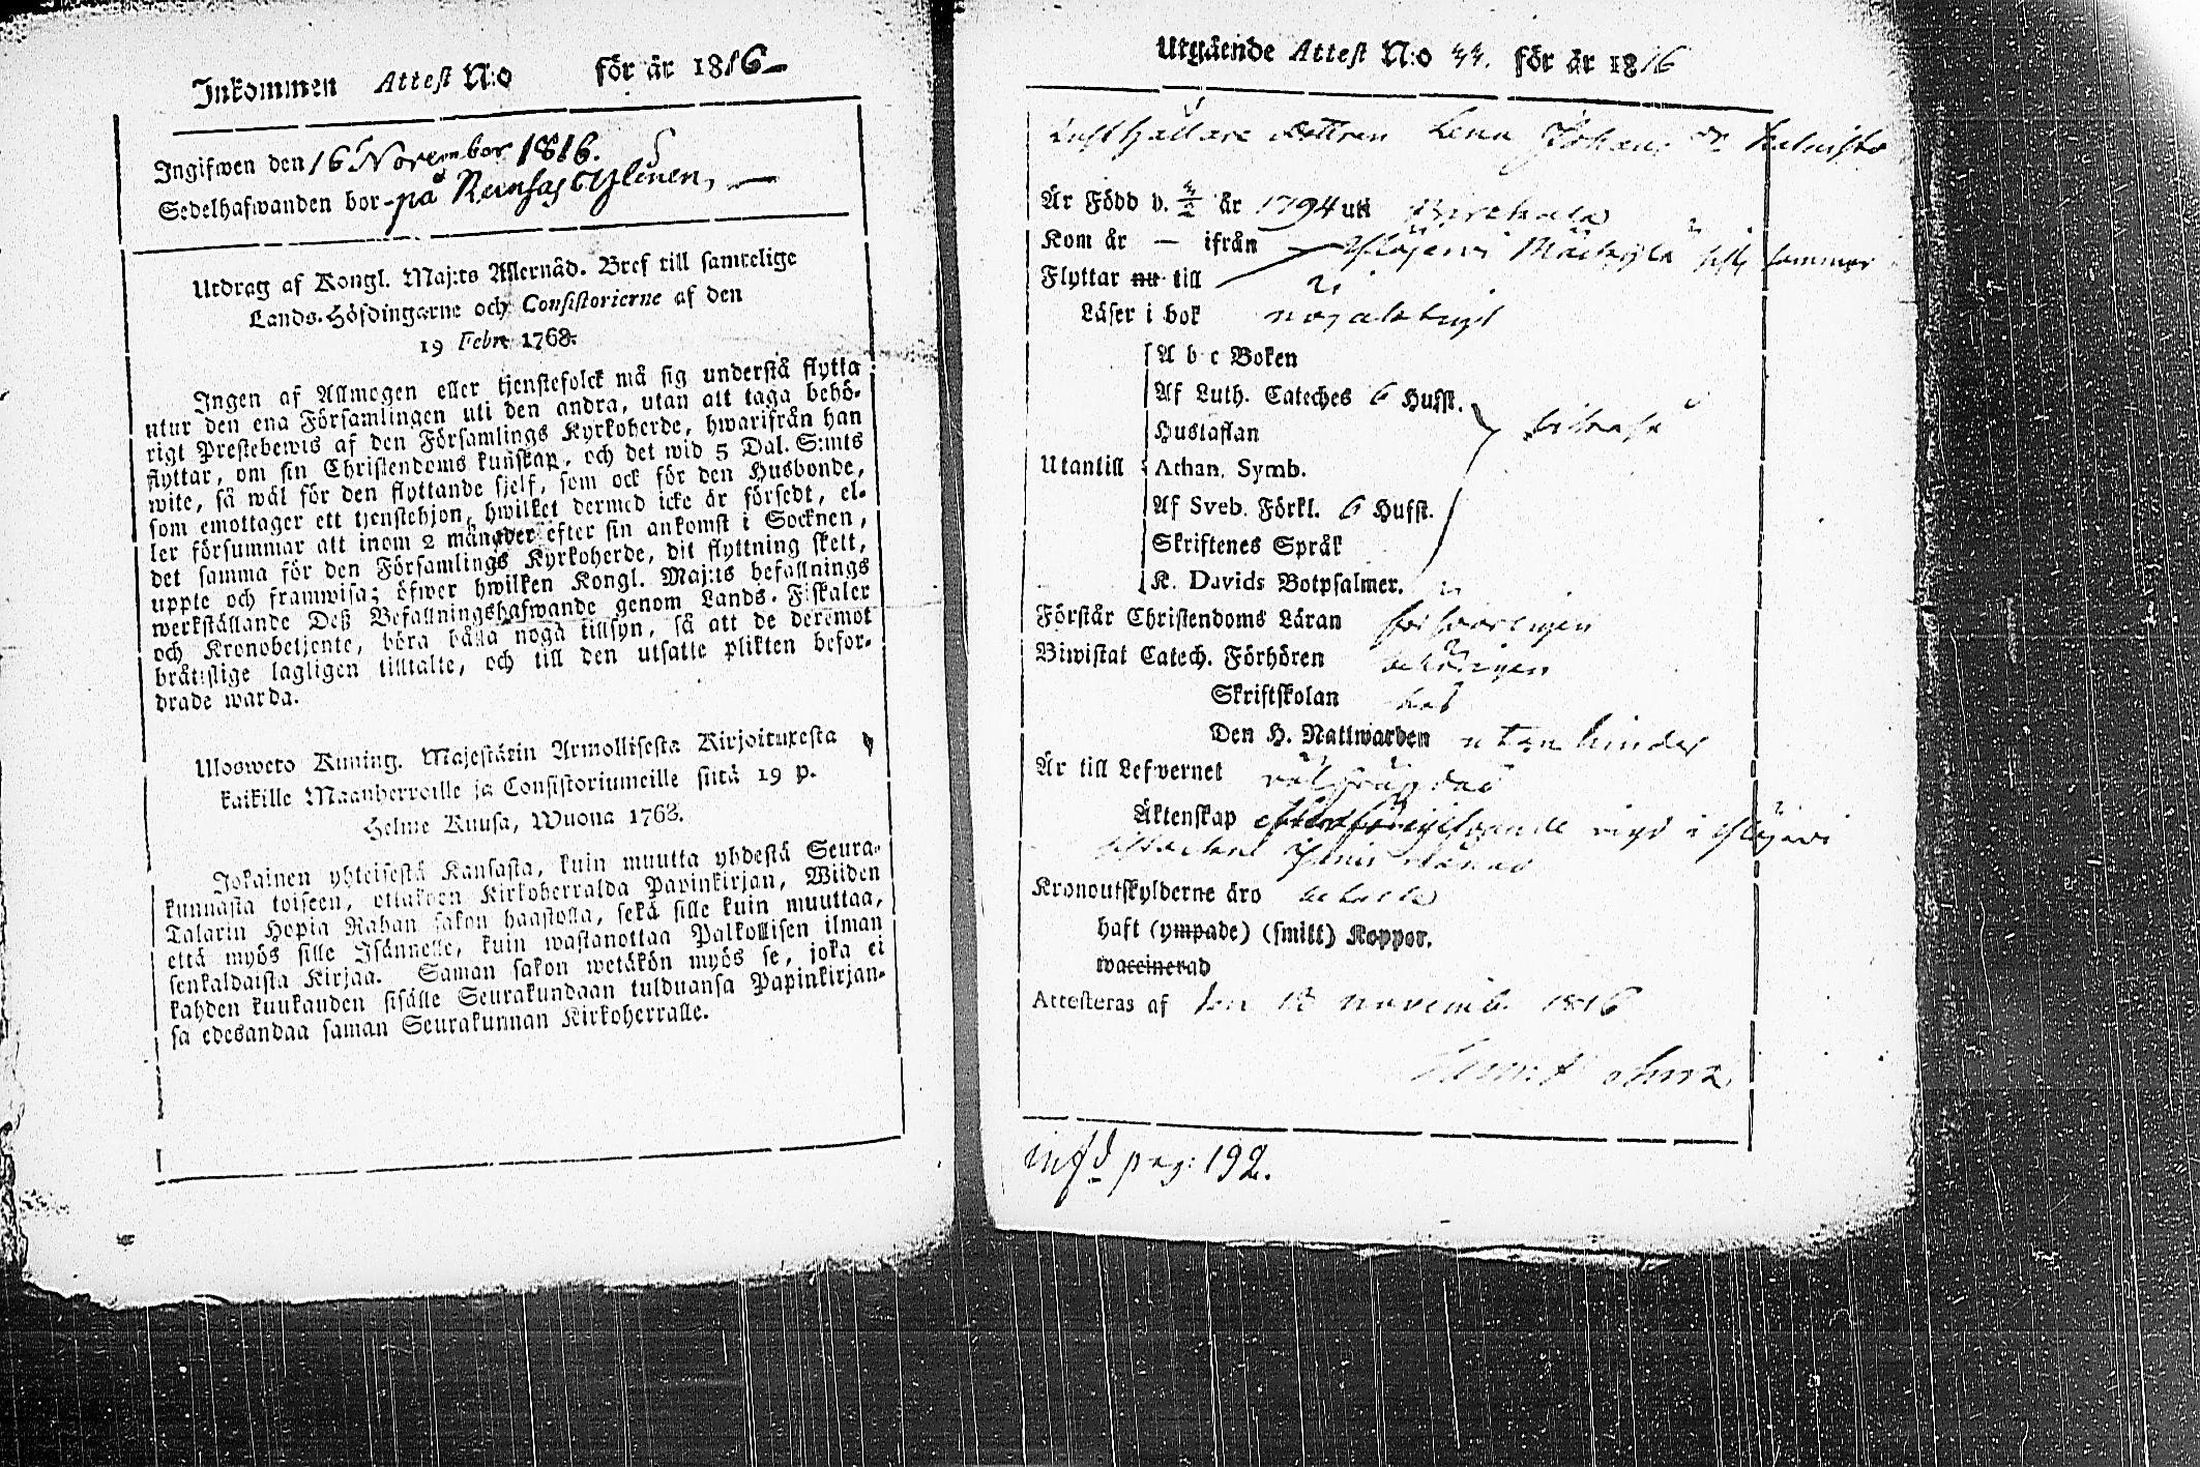 Inkommen Attest N:o för år 1816
Ingifwen den 16 November 1816.
Sedelhafwanden bor på Reunsas Ylinen,
Utdrag af Kongl. Maj:ts Allernåd. Bref till samtelige
Lands-Höfdingarne och Consistorierne af den
19 Febr. 1768.
Ingen af Allmogen eller tjenstefolck må sig understå flytta
utur den ena Församlingen uti den andra, utan att taga behö-
rigt Prestebewis af den Församlings Kyrkoherde, hwarifrån han
flyttar, om sin Christendoms kunskap, och det wid 5 Dal. S:mts
wite, så wäl för den flyttande sjelf, som ock för den Husbonde,
som emottager ett tjenstehjon, hwilket dermed icke är försedt, el-
ler försummar att inom 2 månader efter sin ankomst i Socknen,
det samma för den Församlings Kyrkoherde, dit flyttning skett,
uppte och framwisa; öfwer hwilken Kongl. Maj:ts befallnings
werkställande Deß Befallningshafwande genom Lands-Fiskaler
och Kronobetjente, böra hålla noga tillsyn, så att de deremot
bråtslige lagligen tilltalte, och till den utsatte plikten befor-
drade warda.
Ulosweto Kuning. Majestätin Armollisesta Kirjoituxesta
kaikille Maanherroille ja Consistoriumeille siitä 19 p.
Helme Kuusa, Wuona 1768.
Jokainen yhteisestä Kansasta, kuin muutta yhdestä Seura-
kunnasta toiseen, ottakoon Kirkoherralda Papinkirjan, Wiiden
Talarin Hopia Rahan sakon haastolla, sekä sille kuin muuttaa,
että myös sille Isännelle, kuin wastanottaa Palkollisen ilman
senkaldaista Kirjaa. Saman sakon wetäkön myös se, joka ei
kahden kuukauden sisälle Seurakundaan tulduansa Papinkirjan-
sa edesandaa saman Seurakunnan Kirkoherralle.
Utgående Attest N:o 44. för år 1816
dottren Lena Johans Dr
Är Född d. år 1794 uti Birckala
Kom år — ifrån
Flyttar nu till
Läser i bok
A b c Boken
Af Luth. Cateches 6 Hufst.
Hustaflan
Utantill Athan. Symb.
Af Sveb. Förkl. 6 Hufst.
Skriftenes Språk
K. Davids Botpsalmer.
Förstår Christendoms Läran försvarligen
Biwistat Catech. Förhören behörigen
Skriftskolan
Den H. Nattwarden utan hinder
Är till Lefwernet välfrägdad
Äktenskap
Kronoutskylderne äro betalte
haft (ympade) (smitt) Koppor.
waccinerad
Attesteras af den 12 novemb. 1816
inf:d pag: 192.